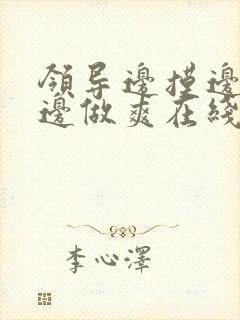 領导邊摸邊
邊做爽在綫
李心澤